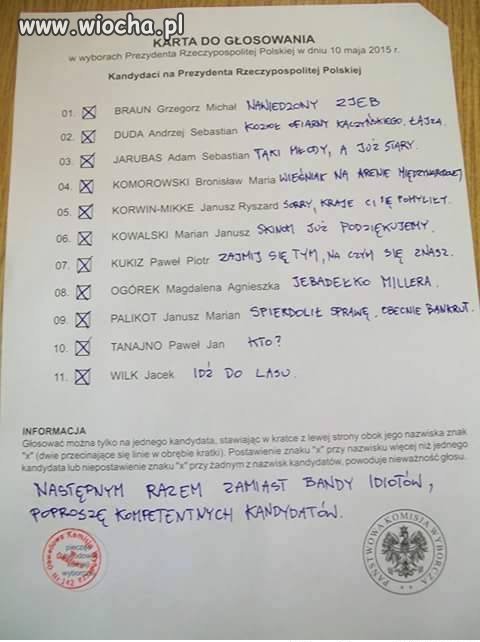 www.wiocha.pl
KARTA DO GŁOSOWANIA
w wyborach Prezydenta Rzeczypospolitej Polskiej w dniu 10 maja 2015 r.
Kandydaci na Prezydenta Rzeczypospolitej Polskiej
01. BRAUN Grzegorz Michał NAWIEDZONY ZJEB
02. DUDA Andrzej Sebastian KOZIOŁ OFIARNY KACZYŃSKIEGO. ŁAJZA.
03. JARUBAS Adam Sebastian TAKI MŁODY, A JUŻ STARY.
04. KOMOROWSKI Bronisław Maria WIEŚNIAK NA ARENIE MIĘDZYNARODOWEJ
05. KORWIN-MIKKE Janusz Ryszard SORRY, KRAJE CI SIĘ POMYLIŁY.
06. KOWALSKI Marian Janusz SKINOM JUŻ PODZIĘKUJEMY.
07. KUKIZ Paweł Piotr ZAJMIJ SIĘ TYM, NA CZYM SIĘ ZNASZ.
08. OGÓREK Magdalena Agnieszka JEBADEŁKO MILLERA.
09. PALIKOT Janusz Marian SPIERDOLIŁ SPRAWĘ. OBECNIE BANKRUT.
10. TANAJNO Paweł Jan KTO?
11. WILK Jacek IDŹ DO LASU.
INFORMACJA
Głosować można tylko na jednego kandydata, stawiając w kratce z lewej strony obok jego nazwiska znak
"x" (dwie przecinające się linie w obrębie kratki). Postawienie znaku "x" przy nazwisku więcej niż jednego
kandydata lub niepostawienie znaku "x" przy żadnym z nazwisk kandydatów, powoduje nieważność głosu.
NASTĘPNYM RAZEM ZAMIAST BANDY IDIOTÓW,
POPROSZĘ KOMPETENTNYCH KANDYDATÓW.
PAŃSTWOWA KOMISJA WYBORCZA